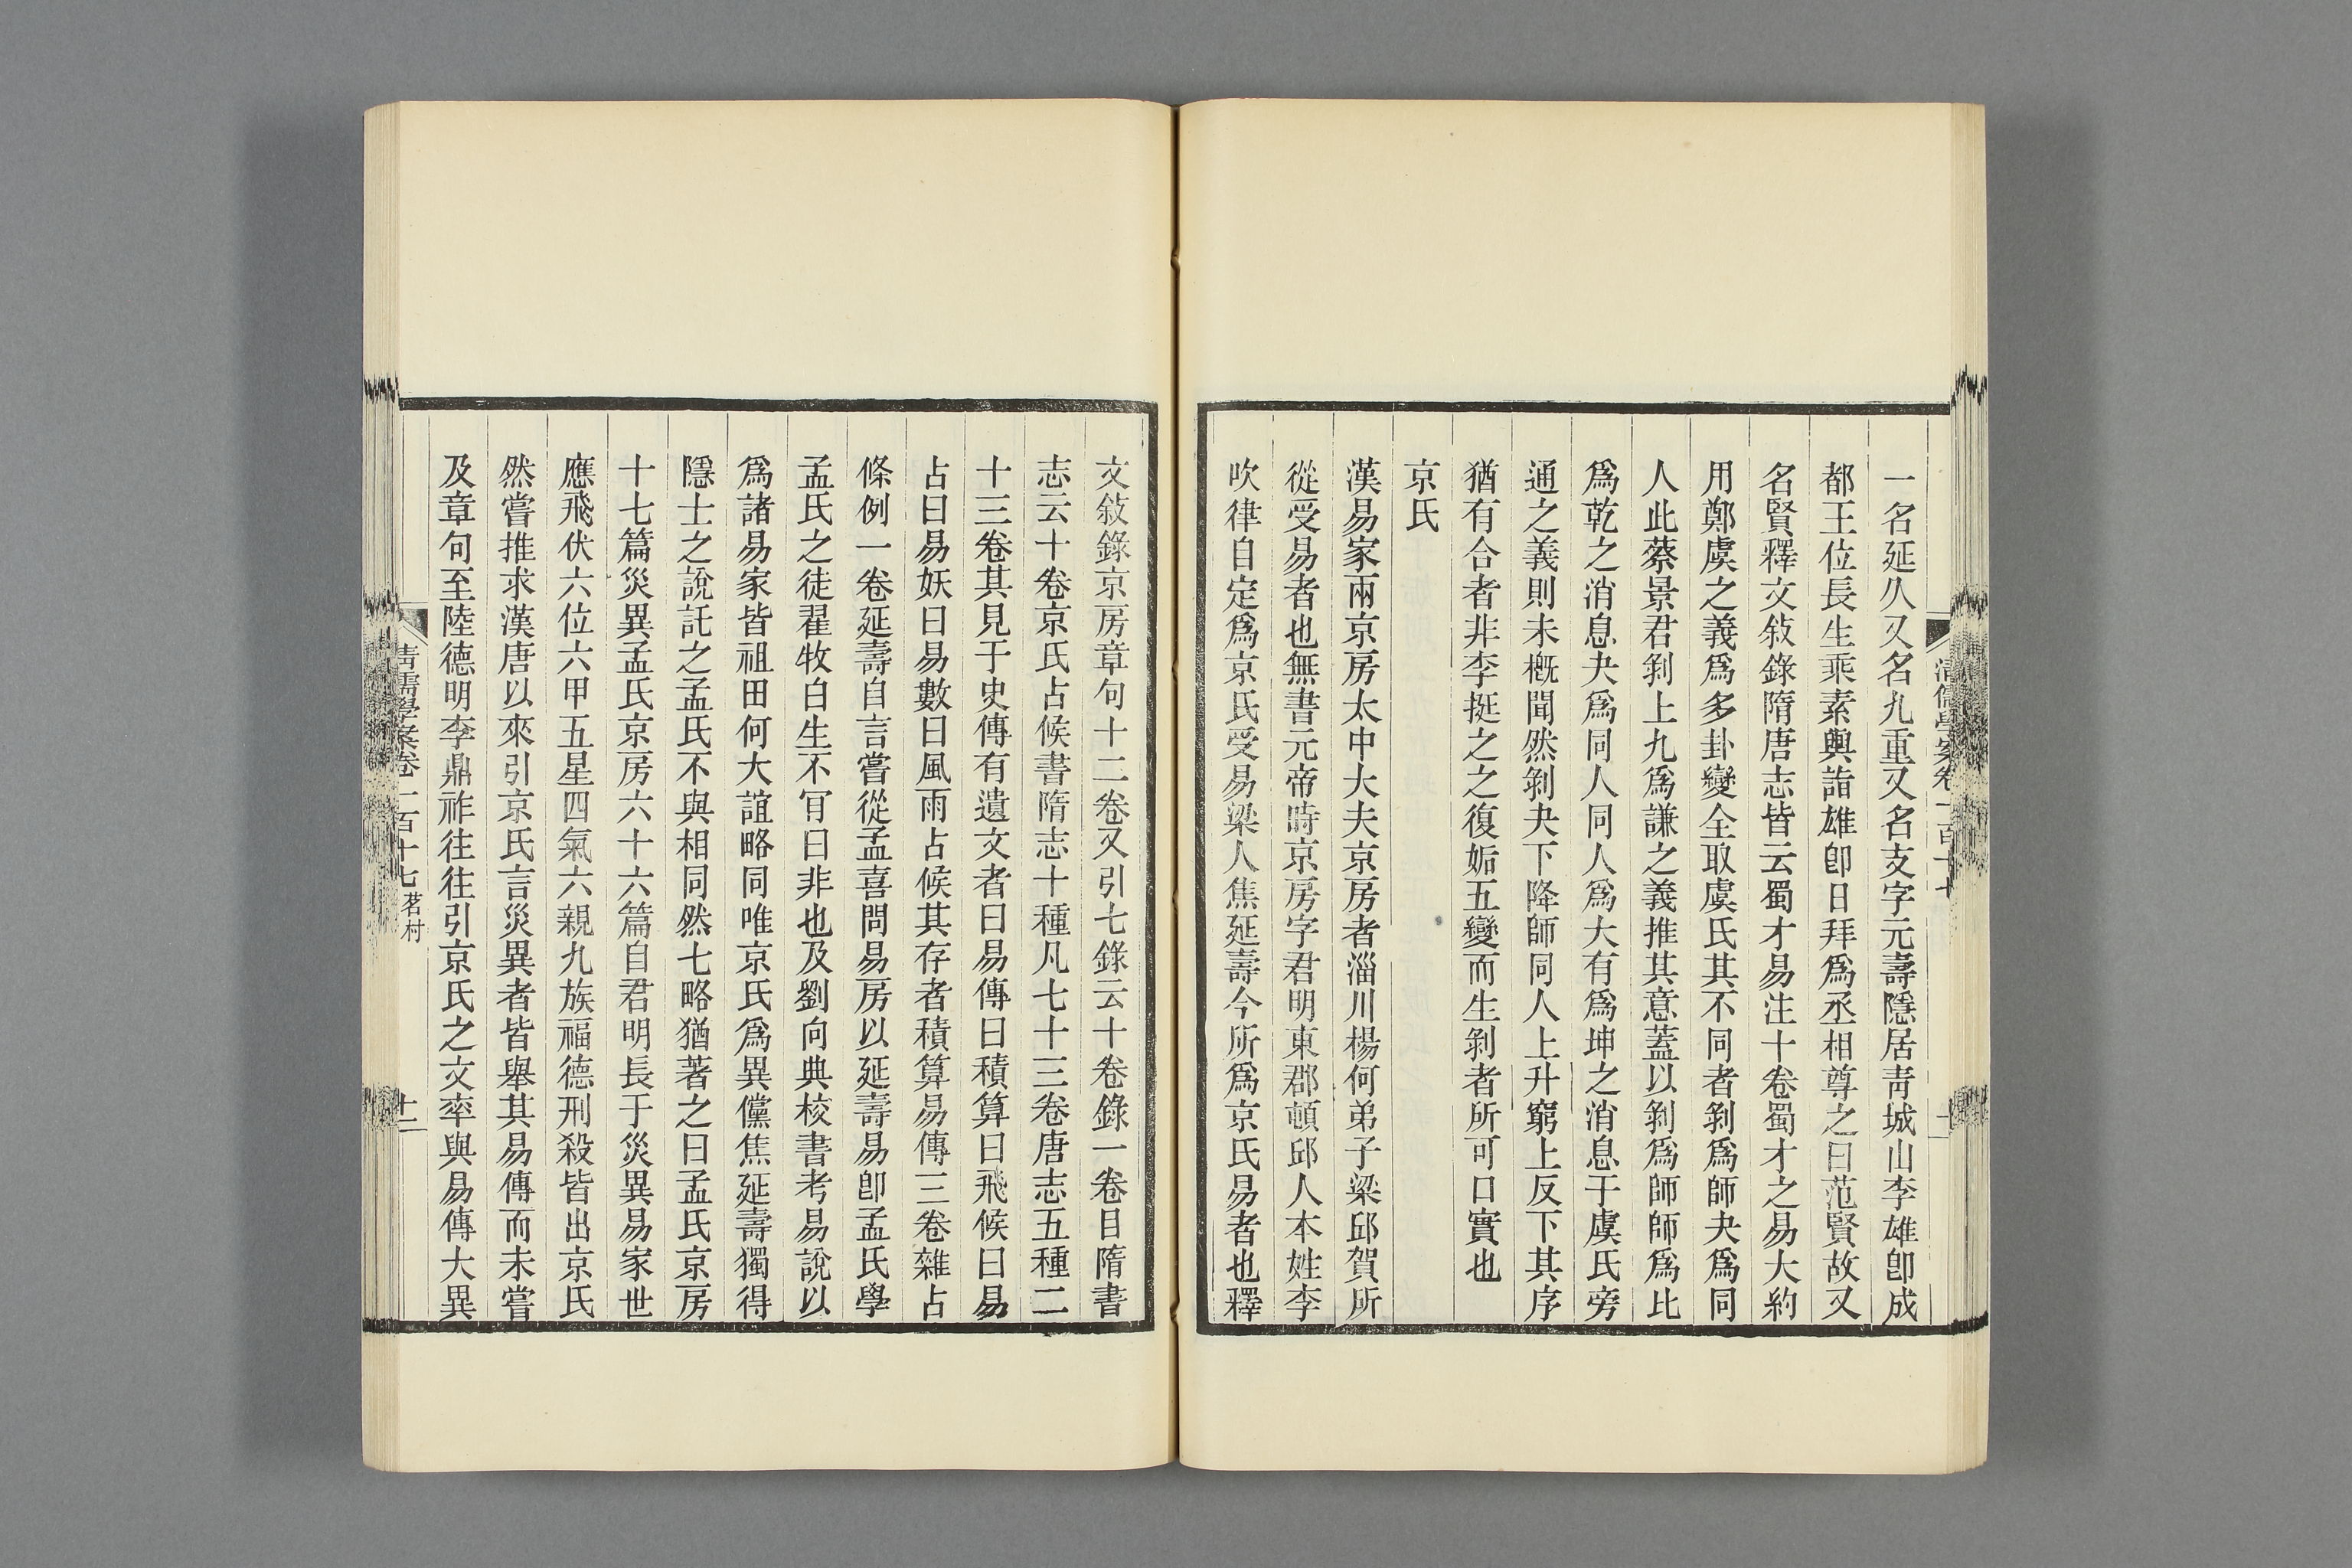 一名延久又名九重又名支字元壽隱居靑城山李雄卽成
都王位長生乘素輿詣雄卽日拜爲丞相尊之曰范賢故又
名賢釋文敍錄隋唐志皆云蜀才易注十卷蜀才之易大約
用鄭虞之義爲多卦變全取虞氏其不同者剝爲師夬爲同
人此蔡景君剝上九爲謙之義推其意蓋以剝爲師師爲比
爲乾之消息夬爲同人同人爲大有爲坤之消息于虞氏旁
通之義則未槪聞然剝夬下降師同人上升窮上反下其序
猶有合者非李挺之之復姤五變而生剝者所可口實也
京氏
漢易家兩京房太中大夫京房者淄川楊何弟子梁邱賀所
從受易者也無書元帝時京房字君明東郡頓邱人本姓李
吹律自定爲京氏受易梁人焦延壽今所爲京氏易者也釋
文敍錄京房章句十二卷又引七錄云十卷錄一卷目隋書
志云十卷京氏占候書隋志十種凡七十三卷唐志五種二
十三卷其見于史傳有遺文者曰易傳曰積算曰飛候曰易
占曰易妖曰易數曰風雨占候其存者積算易傳三卷雜占
條例一卷延壽自言嘗從孟喜問易房以延壽易卽孟氏學
孟氏之徒翟牧白生不肎曰非也及劉向典校書考易說以
爲諸易家皆祖田何大誼略同唯京氏爲異儻焦延壽獨得
隱士之說託之孟氏不與相同然七略猶著之曰孟氏京房
十七篇災異孟氏京房六十六篇自君明長于災異易家世
應飛伏六位六甲五星四氣六親九族福德刑殺皆出京氏
然嘗推求漢唐以來引京氏言災異者皆舉其易傳而未嘗
及章句至陸德明李鼎祚往往引京氏之文率與易傳大異
淸儒學案卷一百十七 茗村
十二